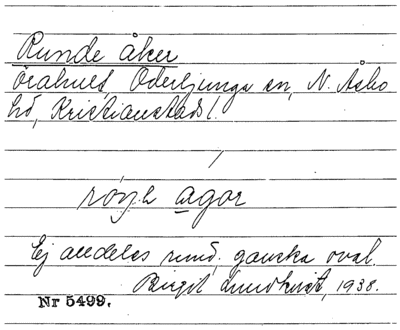 Runde åker
Örahult, Oderljunga sn, N. Åsbo
hd, Kristianstads l.
agor
Ej alldeles rund, ganska oval.
Birgit Lundkvist, 1938.
Nr 5499.